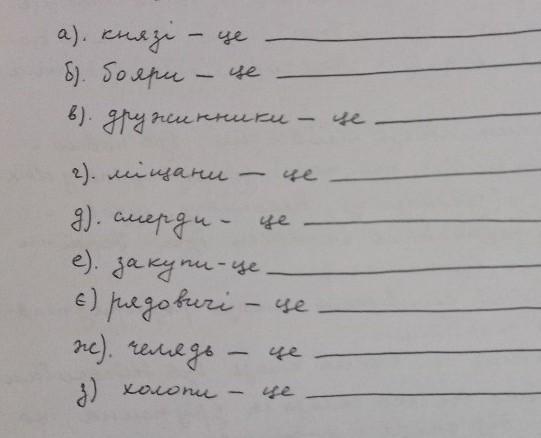 а). князі – це
б). бояри – це
в). дружинники – це
г). міщани – це
д). смерди - це
е). закупи - це
є) рядовичі – це
ж). челядь – це
з) холопи – це